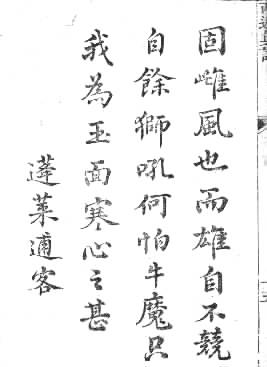 固雌風也而雄自不競
自餘獅吼何怕牛魔只
我為玉面寒心之甚
蓬萊逋客